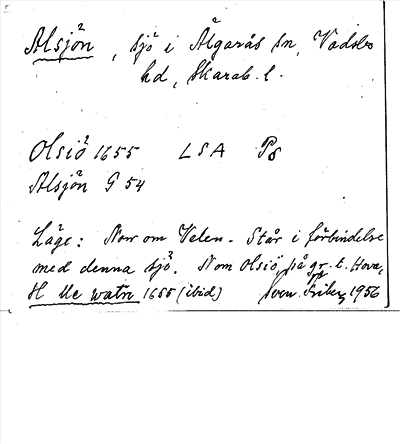 Alsjön, sjö i Älgarås sn, Vadsbo
hd, Skarab. l.
Olsiö 1655 LSA P8
Alsjön G 54
Läge: Norr om Velen. Står i förbindelse
med denna sjö. Nom Olsiö, på gr. t. Hova,
H Ue watn 1655 (ibid) Sven Friberg 1956